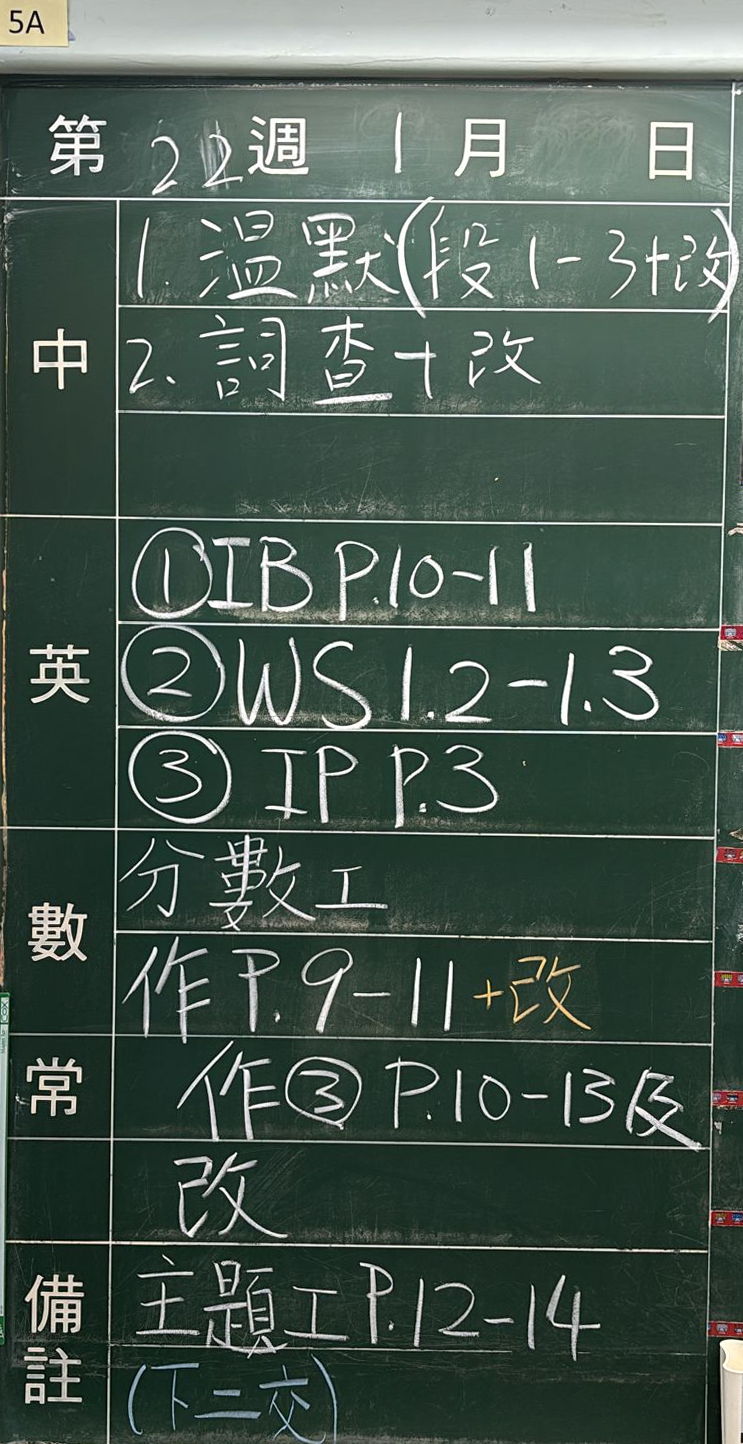 5A
第22週 1月 日
中
1. 温默(段1-3+改)
2. 詞查+改
英
①IB P.10-11
②WS 1.2-1.3
③ IP P.3
數
分數工
作P.9-11+改
常
作③ P.10-13及
改
備註
主題工P.12-14
(下二交)